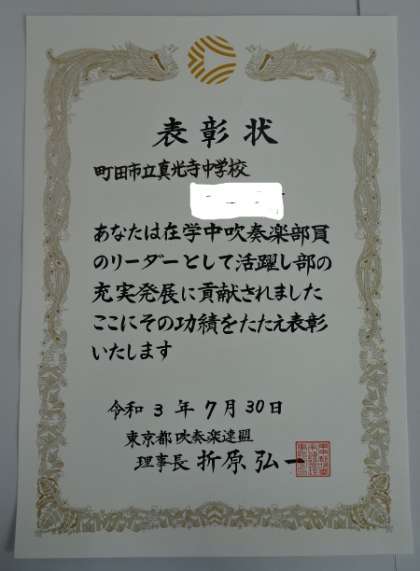 表彰状
町田市立真光寺中学校
あなたは在学中吹奏楽部員
のリーダーとして活躍し部の
充実発展に貢献されました
ここにその功績をたたえ表彰
いたします
令和3年7月30日
東京都吹奏楽連盟
理事長 折原弘一